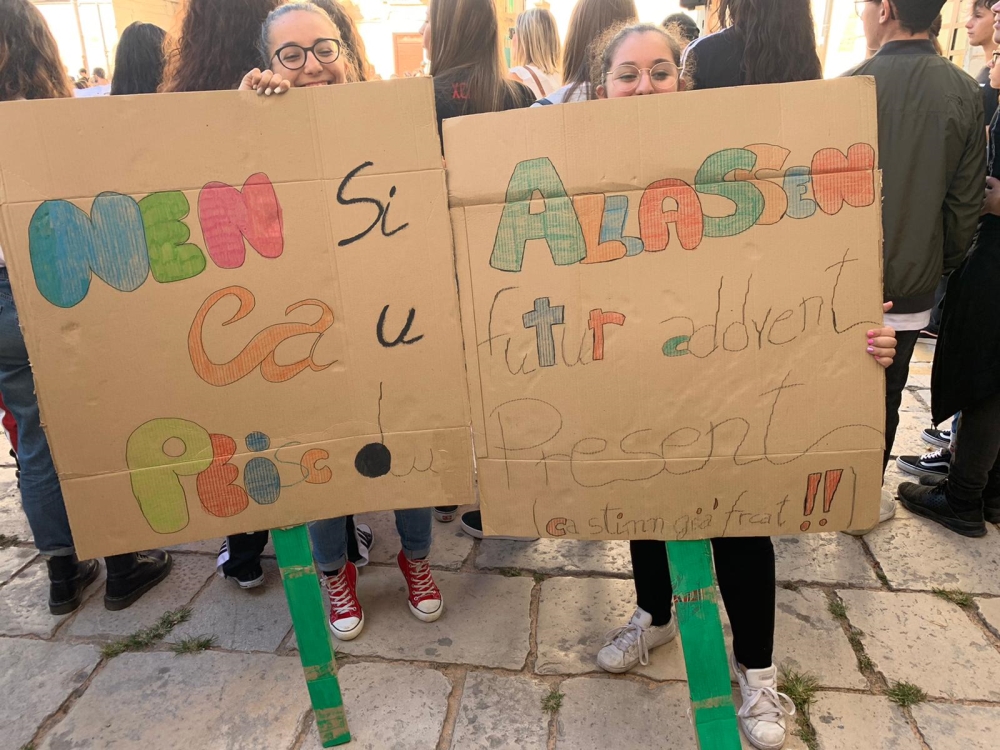 MEN Si
Ca u
PEisc du
ALLASSEN
futur addivent
Present
(ca stimm già freat!!)